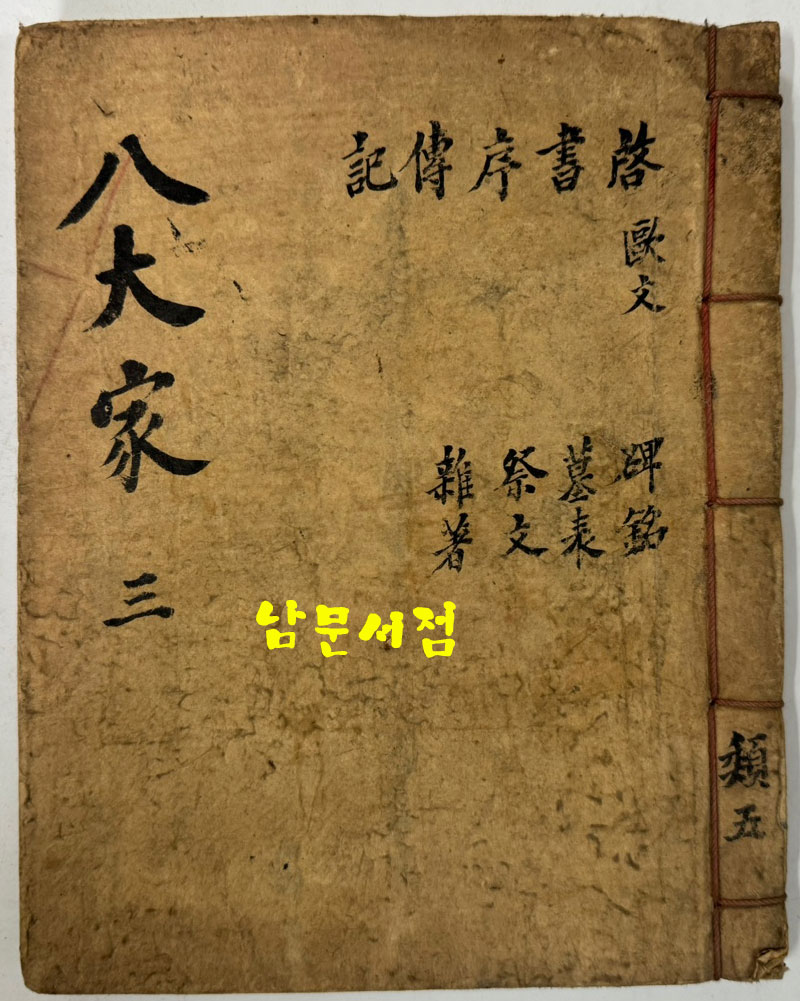 啓 歐文
書
序
傳
記
碑銘
墓表
祭文
雜著
八大家 三
남문서점
類五